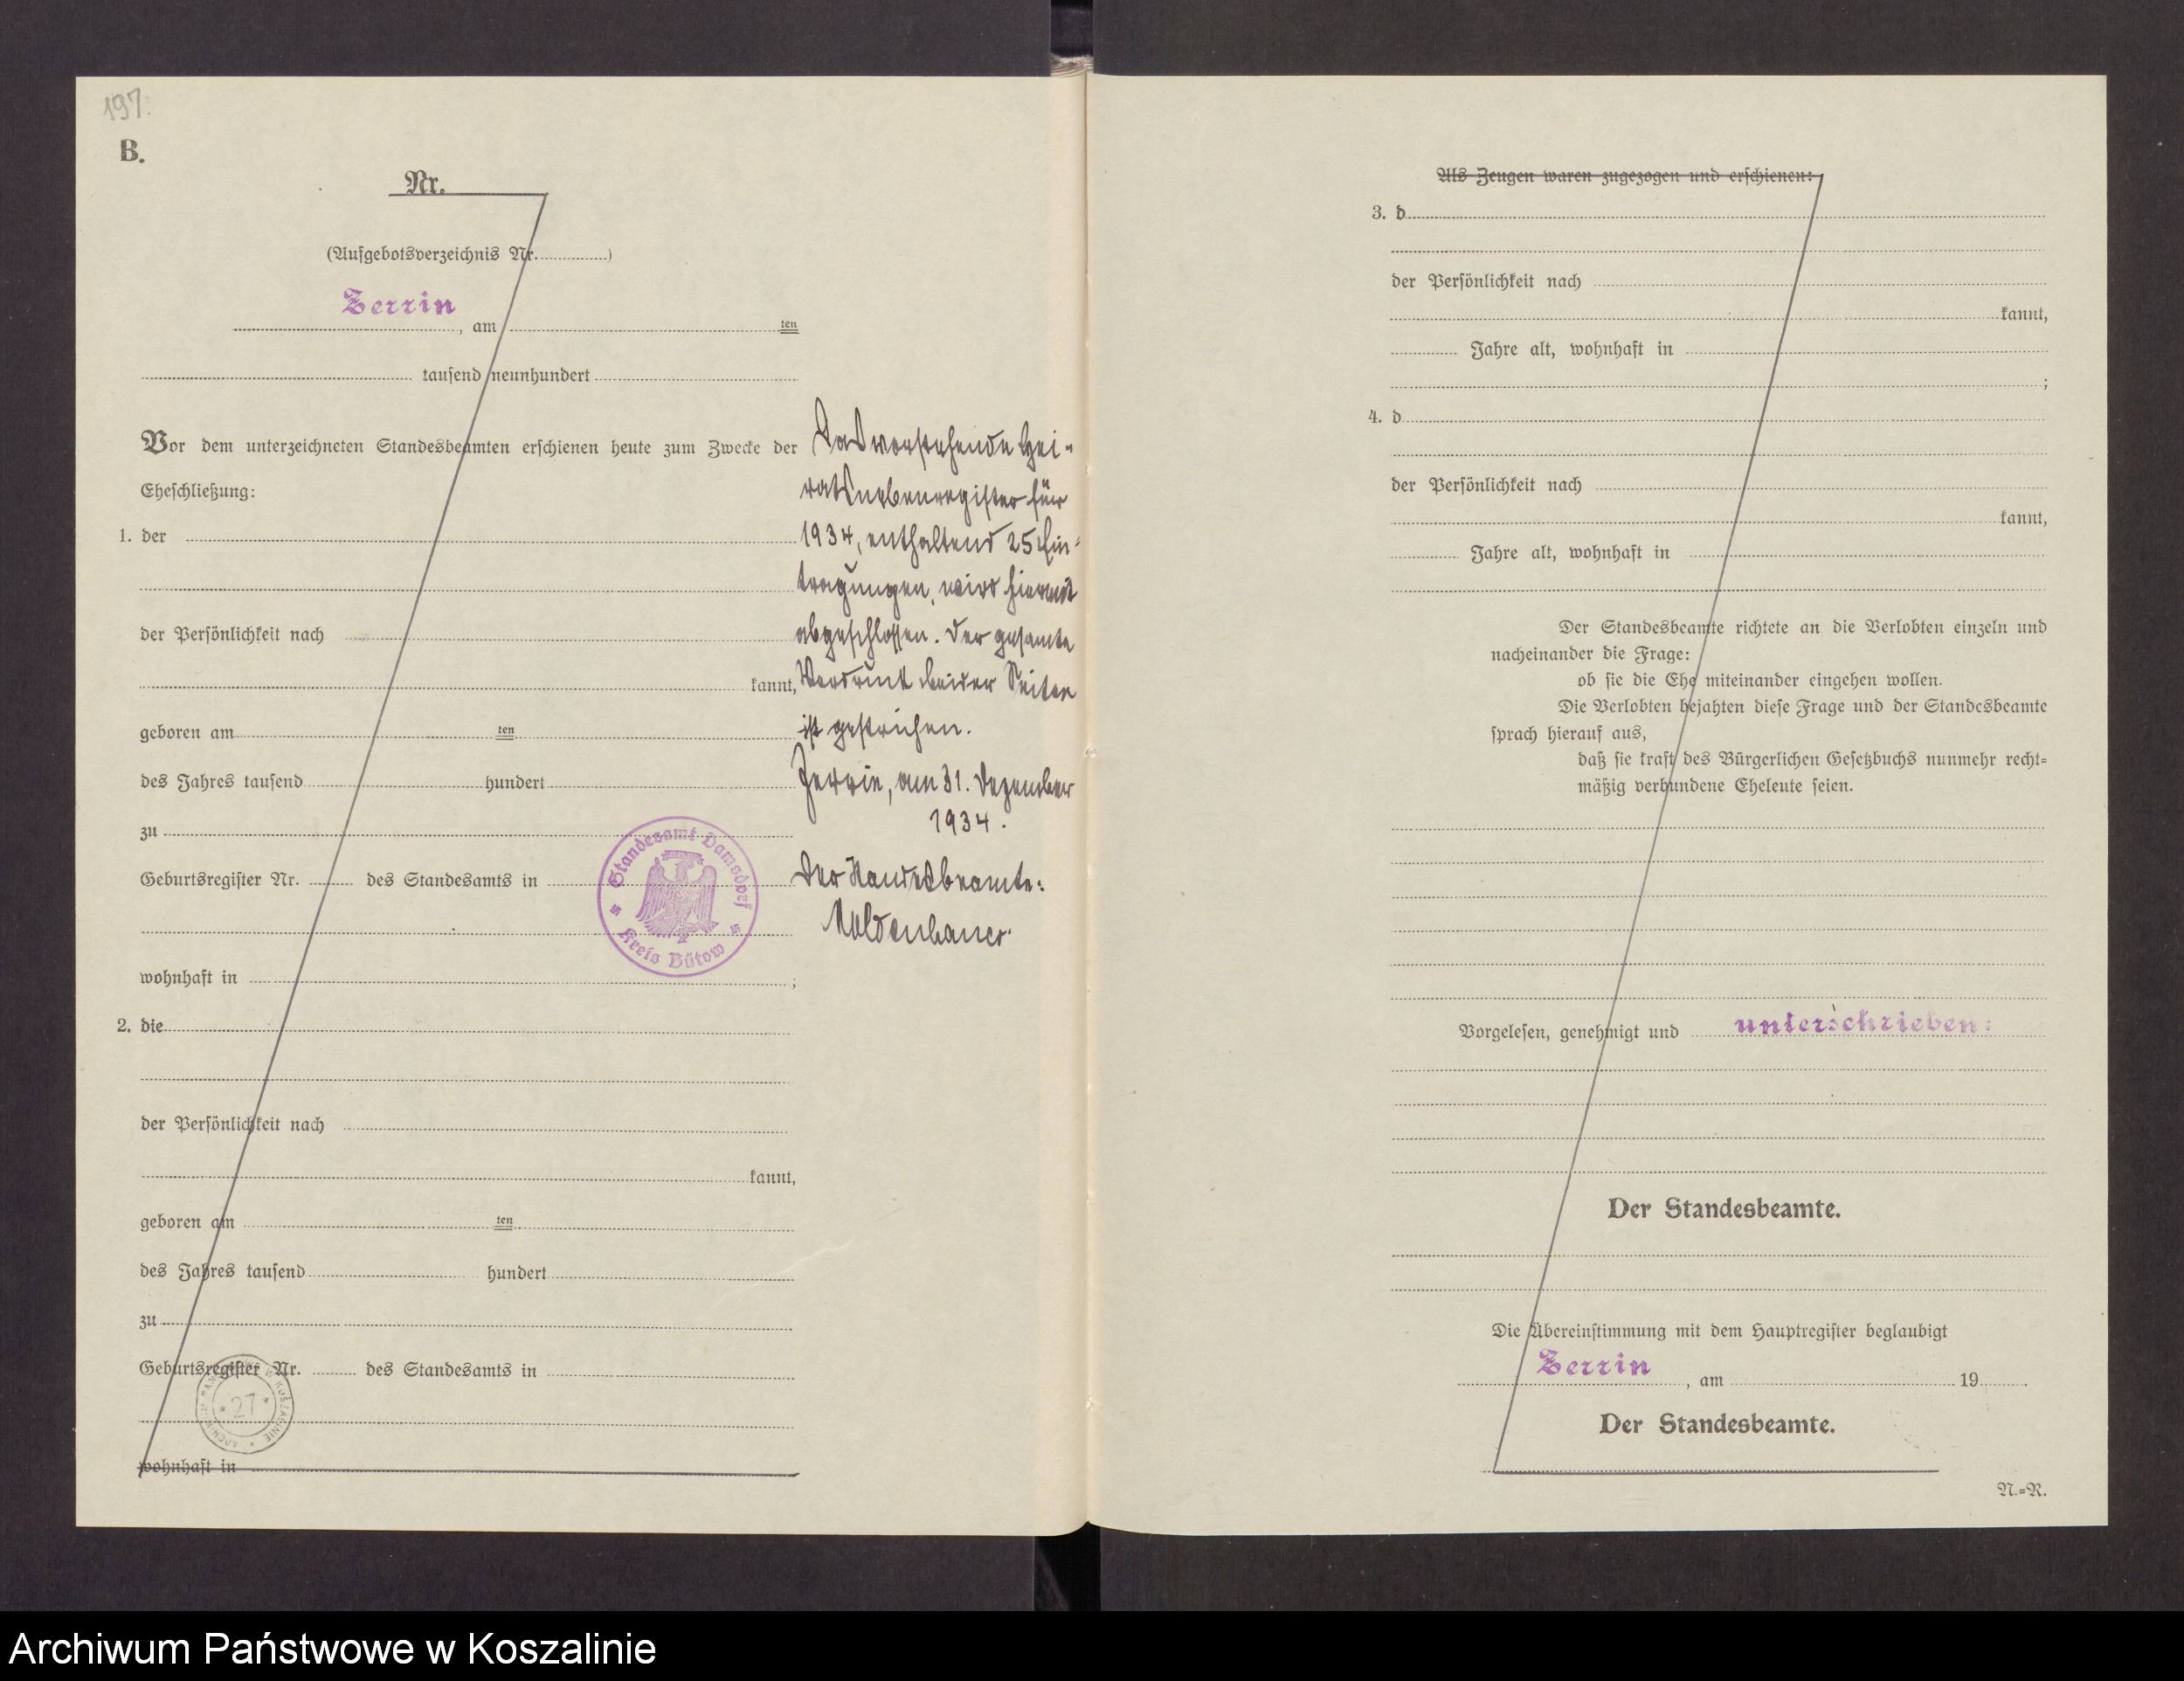 197.
B.
Nr.
(Aufgebotsverzeichnis Nr. )
Zerrin
, am ten
tausend neunhundert
Vor dem unterzeichneten Standesbeamten erschienen heute zum Zwecke der
Eheschließung:
1. der
der Persönlichkeit nach
kannt,
geboren am ten
des Jahres tausend hundert
zu
Geburtsregister Nr. des Standesamts in
wohnhaft in ;
2. die
der Persönlichkeit nach
kannt,
geboren am ten
des Jahres tausend hundert
zu
Geburtsregister Nr. des Standesamts in
wohnhaft in
Das vorstehende Hei-
ratsnebenregister für
1934, enthaltend 25 Ein-
tragungen, wird hiermit
abgeschlossen. Der gesamte
Vordruck beider Seiten
ist gestrichen.
Zerrin, am 31. Dezember
1934.
Der Standesbeamte:
Moldenhauer
Standesamt Damsdorf
Kreis Bütow
27
Als Zeugen waren zugezogen und erschienen:
3. d
der Persönlichkeit nach
kannt,
Jahre alt, wohnhaft in
;
4. d
der Persönlichkeit nach
kannt,
Jahre alt, wohnhaft in
Der Standesbeamte richtete an die Verlobten einzeln und
nacheinander die Frage:
ob sie die Ehe miteinander eingehen wollen.
Die Verlobten bejahten diese Frage und der Standesbeamte
sprach hierauf aus,
daß sie kraft des Bürgerlichen Gesetzbuchs nunmehr recht-
mäßig verbundene Eheleute seien.
Vorgelesen, genehmigt und unterschrieben:
Der Standesbeamte.
Die Übereinstimmung mit dem Hauptregister beglaubigt
Zerrin
, am 19
Der Standesbeamte.
N.-R.
Archiwum Państwowe w Koszalinie